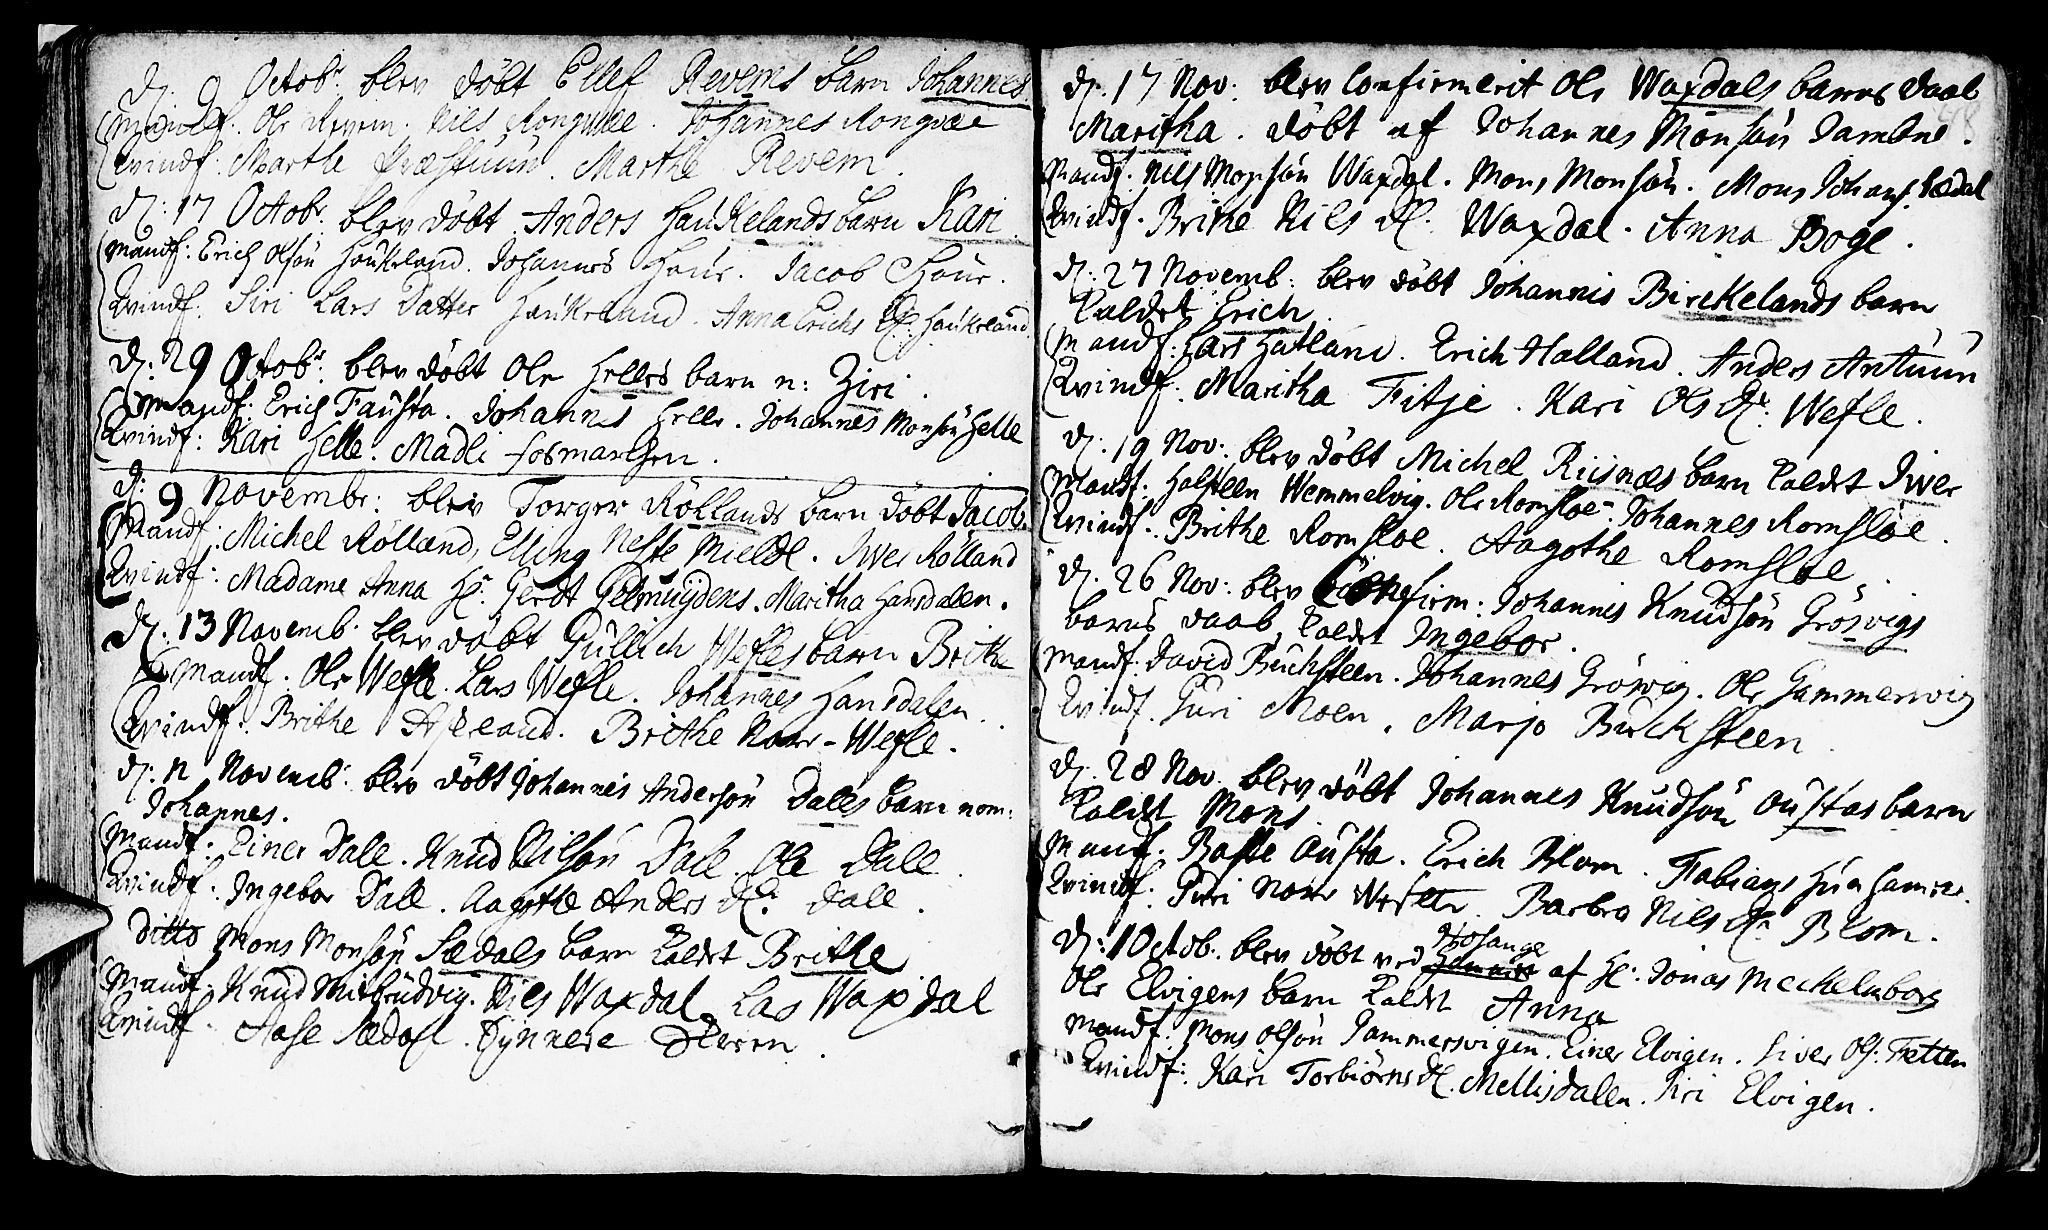 D. 9 Octobr. blev döbt Ellef Revems barn Johannes
Mandf. Ole Revem. Nils Rongvee. Johannes Rongvæ
Qvindf. Marthe Præstuun. Marthe Revem.
D. 17 Octobr. blev döbt Anders Haukelands barn Kari.
Mandf: Erich Olsön Haukeland. Johannes Hour. Jacob Hour.
Qvindf. Siri Lars Datter Haukeland. Anna Erichs D. Haukeland
D. 29 Octobr. blev döbt Ole Helles barn n: Ziri.
Mandf: Erich Fausta. Johannes Helle. Johannes Monsön Helle
Qvindf: Kari Helle. Madli Fosmarchen.
D: 9 Novembr: blev Torger Röllands barn döbt Jacob.
Mandf: Michel Rölland, Elling Neste Mieldl. Iwer Rölland
Qvindf: Madame Anna Hr. Gerdt Gelmuijdens. Maritha Hansdalen.
D. 13 Novemb. blev döbt Gullich Wefles barn Brithe
Mandf. Ole Wefle. Lars Wefle. Johannes Hansdalen.
Qvindf. Brithe Brithe Norr-Wefle.
D: n Novemb: blev döbt Johannes Andersön Dales barn nom:
Johannes.
Mandf: Einer Dale. Knud Nilsön Dale. Ole Dale.
Qvindf: Ingebor Dale. Aagothe Anders D. Dale.
Ditto Mons Monsön Sædals barn kaldet Brithe
Mandf. Knud Mitbrudvig. Nils Waxdal. Las Waxdal
Qvindf. Aase Sædal.
D. 17 Nov: blev Confirmerit Ole Waxdals barns daab
Maritha. döbt af Johannes Monsön Samdne.
Mandf. Nils Monsön Waxdal. Mons Monsön. Mons Johans. Sædal
Qvindf. Brithe Nils D. Waxdal. Anna Boge.
D: 27 Novemb: blev döbt Johannis Birckelands barn
kaldet Erich.
Mandf: Lars Hatland. Erich Halland. Anders Antuun
Qvindf. Maritha Fitje. Kari Ols D. Wefle.
D. 19 Nov: blev döbt Michel Riisnæs barn kaldet Iwer
Mandf: Halsteen Wemmelvig. Ole Romsloe. Johannes Romsloe.
Qvindf. Brithe Romsloe. Aagothe Romsloe.
D. 26 Nov: blev Confirm: Johannis Knudsön Grösvigs
barns daab, kaldet Ingebor.
Mandf: David Buchsteen. Johannes Grösvig. Ole Gammersvig
Qvindf. Guri Moen. Marjo Buchsteen.
D. 28 Nov. blev döbt Johannes Knudsön Oustas barn
kaldet Mons.
Mandf. Baste Ousta. Erich Blom. Fabians
Qvindf: Siri Norr Wefle. Barbro Nils D. Blom.
D: 1 Octob. blev döbt ved Hosanger af Hr. Jonas Mechelnborg
Ole Elvigens barn kaldet Anna
Mandf. Mons Olsön Gammersvigen. Einer Elvigen. Siver Ols: Tetten
Qvindf: Kari Torbiörns D. Mellisdalen. Siri Elvigen.